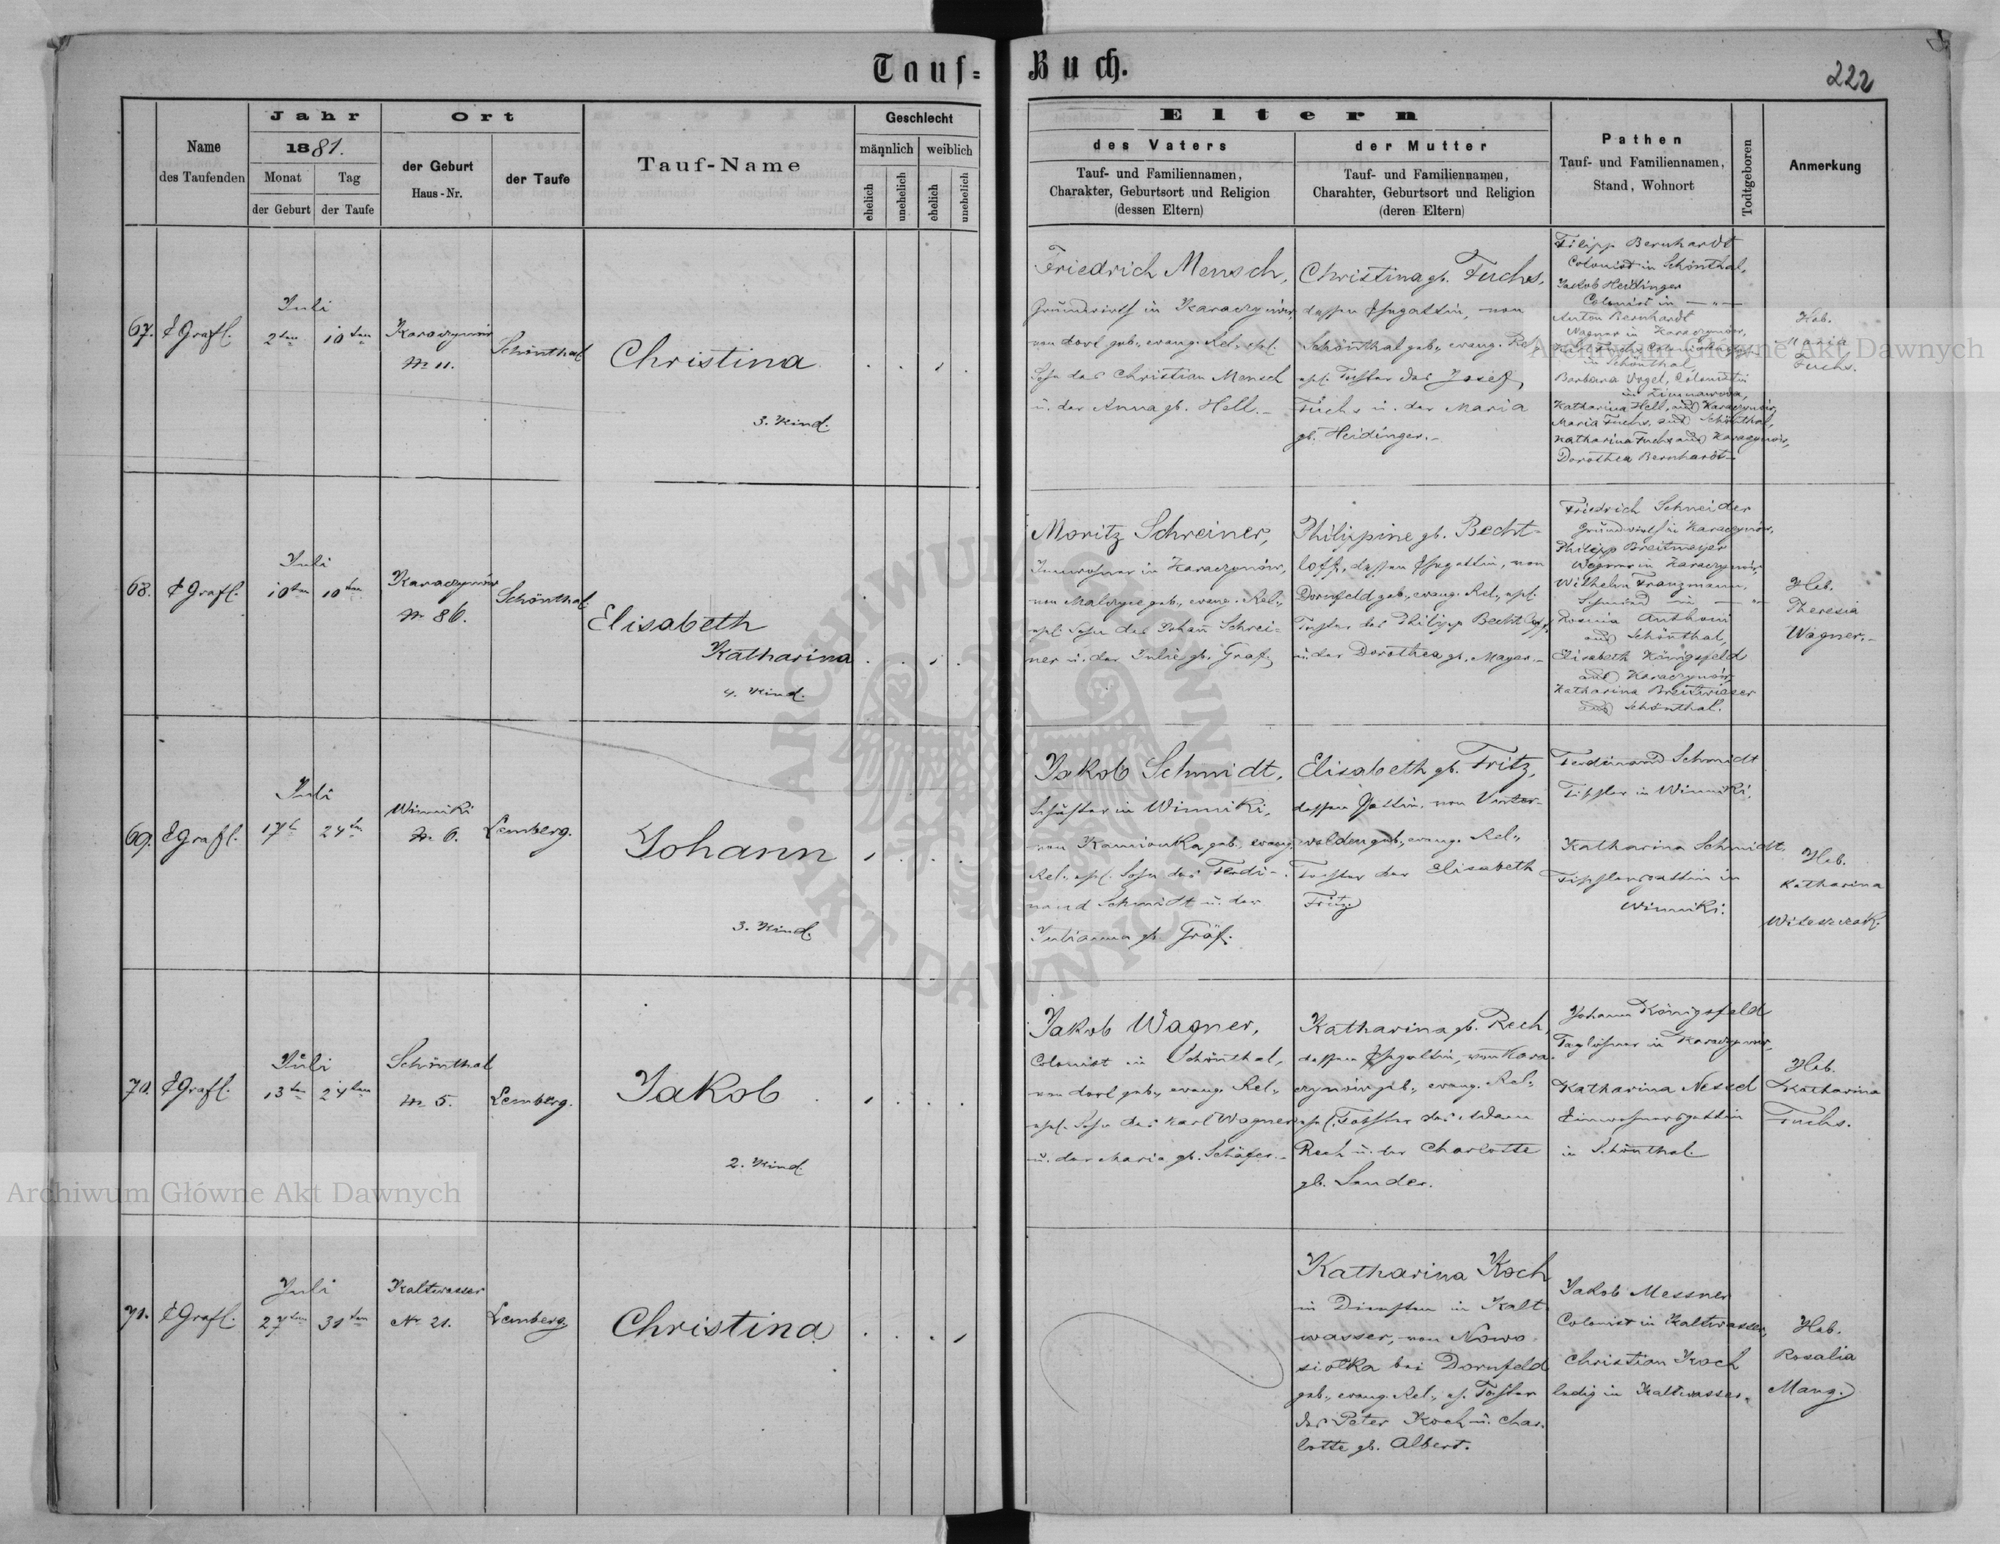 Tauf-Buch.
222
Name
des Taufenden
Jahr
1881.
Monat
Tag
der Geburt
der Taufe
Ort
der Geburt
Haus-Nr.
der Taufe
Tauf-Name
Geschlecht
männlich
weiblich
ehelich
unehelich
ehelich
unehelich
Eltern
des Vaters
Tauf- und Familiennamen,
Charakter, Geburtsort und Religion
(dessen Eltern)
der Mutter
Tauf- und Familiennamen,
Charahter, Geburtsort und Religion
(deren Eltern)
Pathen
Tauf- und Familiennamen,
Stand, Wohnort
Todtgeboren
Anmerkung
67.
Juli
2ten
10ten
Karaczynów
Nr 11.
Schönthal
Christina
3. Kind.
Friedrich Mensch,
Grundwirth in Karaczynów,
von dort geb., evang. Rel., ehel.
Sohn des Christian Mensch
u. der Anna gb. Hell.-
Christina gb. Fuchs,
dessen Ehegattin, von
Schönthal geb., evang. Rel.,
ehel. Tochter des Josef
Fuchs u. der Maria
gb. Heidinger.-
Filipp Bernhardt
Colonist in Schönthal,
Jakob Heidinger
Colonist in — " —
Anton Bernhardt
Wagner in Karaczynów,
in Schönthal,
Barbara Vogel, Colonistin
in
Katharina Hell, aus Karaczynów,
Maria Fuchs, aus Schönthal,
Katharina Fuchs aus Karaczynów,
Dorothea Bernhardt-
Heb.
Maria
Fuchs.
68.
Juli
10ten
10ten
Karaczynów
Nr 86.
Schönthal
Elisabeth
Katharina
4. Kind.
Moritz Schreiner,
Inwohner in Karaczynów,
von geb., evang. Rel.,
ehel. Sohn des Johann Schrei-
ner u. der Julie gb. Graf,
Philippine gb. Becht-
loff, dessen Ehegattin, von
Dornfeld geb., evang. Rel., ehel.
Tochter des Philipp Bechtloff,
u. der Dorothea gb. Mayer.-
Friedrich Schneider
Grundwirth in Karaczynów,
Philipp Breitmeyer
Wagner in Karaczynów,
Wilhelm Traugmann,
Schmied in — " —
Rosina Anthoni
aus Schönthal,
Elisabeth Königsfeld
aus Karaczynów,
Katharina Breitwieser
aus Schönthal.
Heb.
Theresia
Wagner.-
69.
Juli
17t
24ten
Winniki
Nr 6.
Lemberg.
Johann
3. Kind.
Jakob Schmidt,
Schuster in Winniki,
von Kamionka geb., evang.
Rel., ehel. Sohn des Ferdi-
nand Schmidt u. der
Julianna gb. Gräf.
Elisabeth gb. Fritz,
dessen Gattin, von Unter-
walden geb., evang. Rel.,
Tochter der Elisabeth
Fritz.
Ferdinand Schmidt
Tischler in Winniki.
Katharina Schmidt,
Tischlersgattin in
Winniki.
Heb.
Katharina
70.
Juli
13ten
24ten
Schönthal
Nr 5.
Lemberg.
Jakob
2. Kind
Jakob Wagner,
Colonist in Schönthal,
von dort geb., evang. Rel.,
ehel. Sohn des Karl Wagner
u. der Maria gb. Schäfer.-
Katharina gb. Rech,
dessen Ehegattin, von Kara-
czynów geb., evang. Rel.,
ehel. Tochter des Adam
Rech u. der Charlotte
gb. Sander.
Johann Königsfeld
Taglöhner in Karaczynów,
Katharina Nessel
Einwohnersgattin
in Schönthal.
Heb.
Katharina
Fuchs.
71.
Juli
27ten
31ten
Kaltwasser
Nr 21.
Lemberg
Christina
Katharina Koch
in Diensten in Kalt
wasser, von Nowo
siolka bei Dornfeld
geb., evang. Rel., eh. Tochter
des Peter Koch u. Char-
lotte gb. Albert.
Jakob Messner
Colonist in Kaltwasser,
Christian Koch
ledig in Kaltwasser.
Heb.
Rosalia
Mang.
Archiwum Główne Akt Dawnych
Archiwum Główne Akt Dawnych
ARCHIWUM GŁÓWNE AKT DAWNYCH